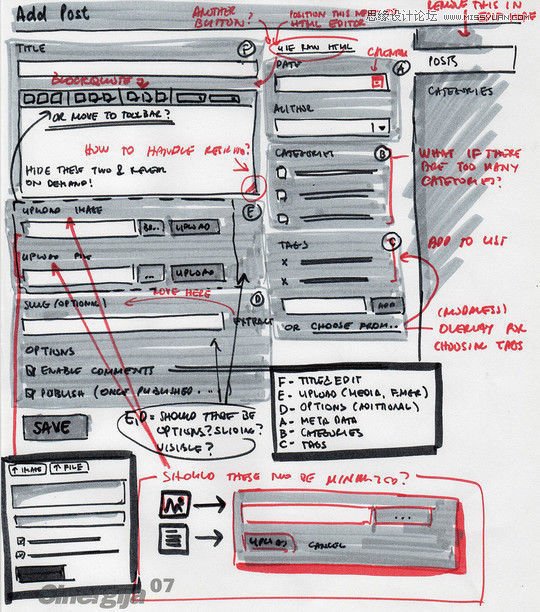 Add Post
ANOTHER
BUTTON?
POSITION THIS NEAR
HTML EDITOR
思缘设计论坛 WWW.MISSYUAN.COM
REMOVE THIS IN
F
USE RAW HTML
TITLE
BLOCKQUOTE?
OR MOVE TO TOOLBAR?
HOW TO HANDLE RESIZING?
HIDE THESE TWO & REVEAL
ON DEMAND!
DATE
CALENDAR
A
AUTHOR
POSTS
CATEGORIES
CATEGORIES
B
WHAT IF THERE
ARE TOO MANY
CATEGORIES?
UPLOAD IMAGE
E
UPLOAD
UPLOAD FILE
...
UPLOAD
MOVE HERE
TAGS
C
X
X
ADD
OR CHOOSE FROM...
ADD TO LIST
(MODELESS)
OVERLAY FOR
CHOOSING TAGS
SLUG (OPTIONAL)
D
OPTIONS
ENABLE COMMENTS
PUBLISH (ONCE PUBLISHED...
SAVE
E, D = SHOULD THERE BE
OPTIONS? SLIDING?
VISIBLE?
F - TITLE & EDIT
E - UPLOAD (MEDIA,
D - OPTIONS (ADITIONAL)
A - META DATA
B - CATEGORIES
C - TAGS
↑ IMAGE
↑ FILE
SHOULD THESE TWO BE MINIMIZED?
...
UPLOAD
CANCEL
Sinergija 07